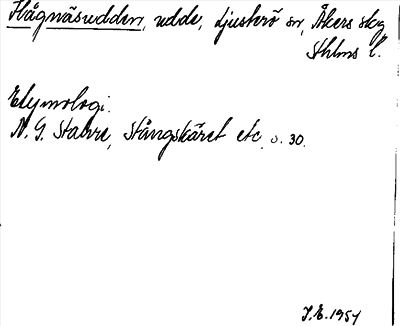 Hågnäsudden, udde, Ljusterö sn, Åkers skg
Sthlms l.
Etymologi:
N. G. Stahre, Stångskäret etc. s. 30.
I.E. 1954